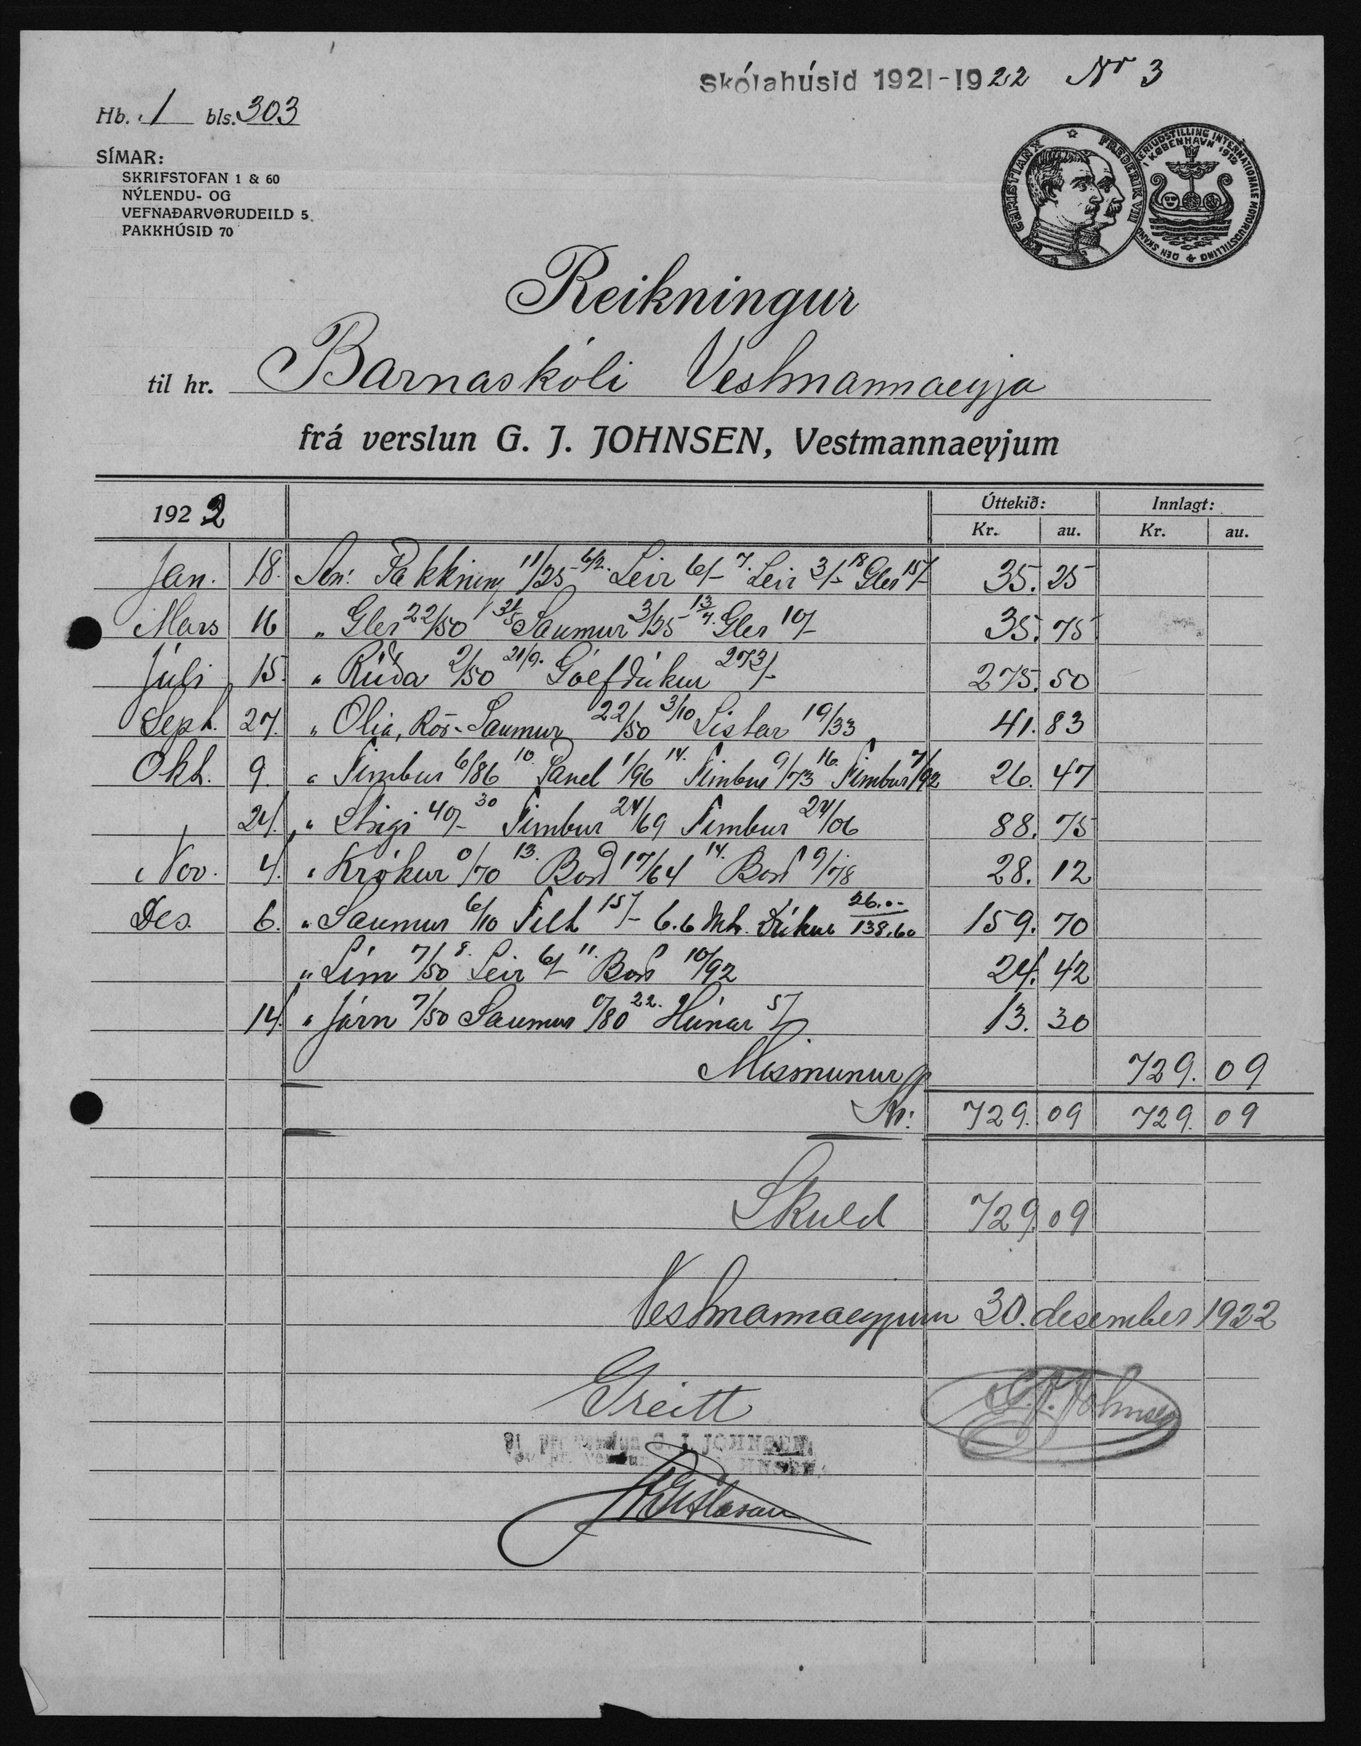 Skólahúsið 1921-1922 Nr 3
Hb. 1 bls. 303
SÍMAR:
SKRIFSTOFAN 1 & 60
NÝLENDU- OG
VEFNAÐARVÖRUDEILD 5
PAKKHÚSIÐ 70
CHRISTIAN X FREDERIK VIII
Reikningur
til hr. Barnaskóli Vestmannaeyja
frá verslun G. J. JOHNSEN, Vestmannaeyjum
1922 Úttekið: Innlagt:
Kr. au. Kr. au.
Jan. 18. An: Pakkning 11/25 6/2. Leir 6/- 7. Leir 3/- 18 Gler 15/- 35. 25
Mars 16 " Gler 22/50 31/5 Saumur 3/25 13/7. Gler 10/- 35. 75
Júli 15. " Rúða 2/50 21/9. Gólfdúkur 273/- 275. 50
Sept. 27. " Olia, Rör-Saumur 22/50 3/10 Listar 19/33 41. 83
Okt. 9. " Timbur 6/86 10. Panel 1/96 14. Timbur 9/73 16. Timbur 7/92 26. 47
24. " Stigi 40/- 30 Timbur 24/69 Timbur 24/06 88. 75
Nov. 4. " Krókur 0/70 13. Borð 17/64 14. Borð 9/78 28. 12
Des. 6. " Saumur 6/10 Filt 15/- 6.6 Mtr. Dúkur 26.-/138.60 159. 70
" Lím 7/50 8. Leir 6/- 11. Borð 10/92 24. 42
14. " Járn 7/50 Saumur 0/80 22. Húnar 5/- 13. 30
Mismunur 729. 09
Kr: 729. 09 729. 09
Skuld 729. 09
Vestmannaeyjum 30. desember 1922
Greitt G. J. Johnsen